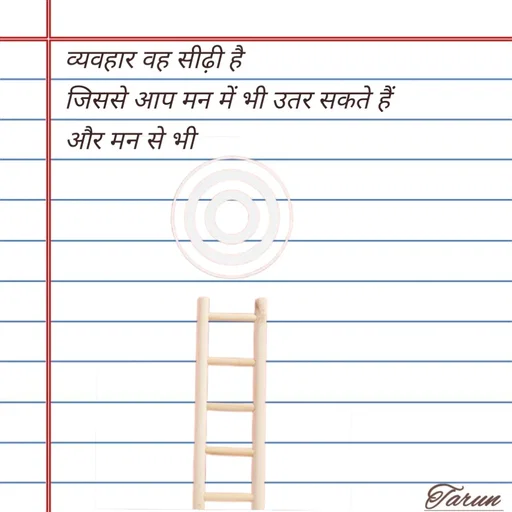 व्यवहार वह सीढ़ी है
जिससे आप मन में भी उतर सकते हैं
और मन से भी
Tarun